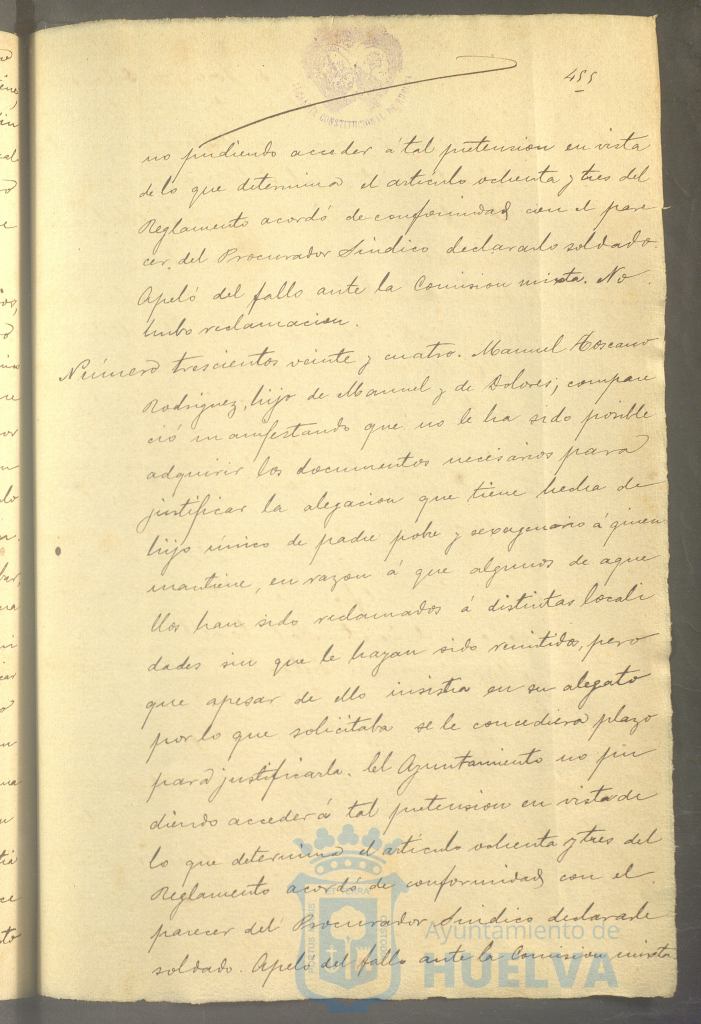 455
no pudiendo acceder á tal pretension en vista
de lo que determina el artículo ochenta y tres del
Reglamento acordó de conformidad con el pare-
cer del Procurador Síndico declararlo soldado.
Apeló del fallo ante la Comision mixta. No
hubo reclamacion.
Número trescientos veinte y cuatro. Manuel Toscano
Rodriguez, hijo de Manuel y de Dolores, compare
ció manifestando que no le ha sido posible
adquirir los documentos necesarios para
justificar la alegacion que tiene hecha de
hijo único de padre pobre y sexagenario á quien
mantiene, en razon á que algunos de aque
llos han sido reclamados á distintas locali
dades sin que le hayan sido remitidos, pero
que apesar de ello insistia en su alegato
por lo que solicitaba se le concediera plazo
para justificarla. El Ayuntamiento no pu
diendo acceder á tal pretension en vista de
lo que determina el artículo ochenta y tres del
Reglamento acordó de conformidad con el
parecer del Procurador Síndico declararle
soldado. Apeló del fallo ante la Comision mixta.
Ayuntamiento de
HUELVA